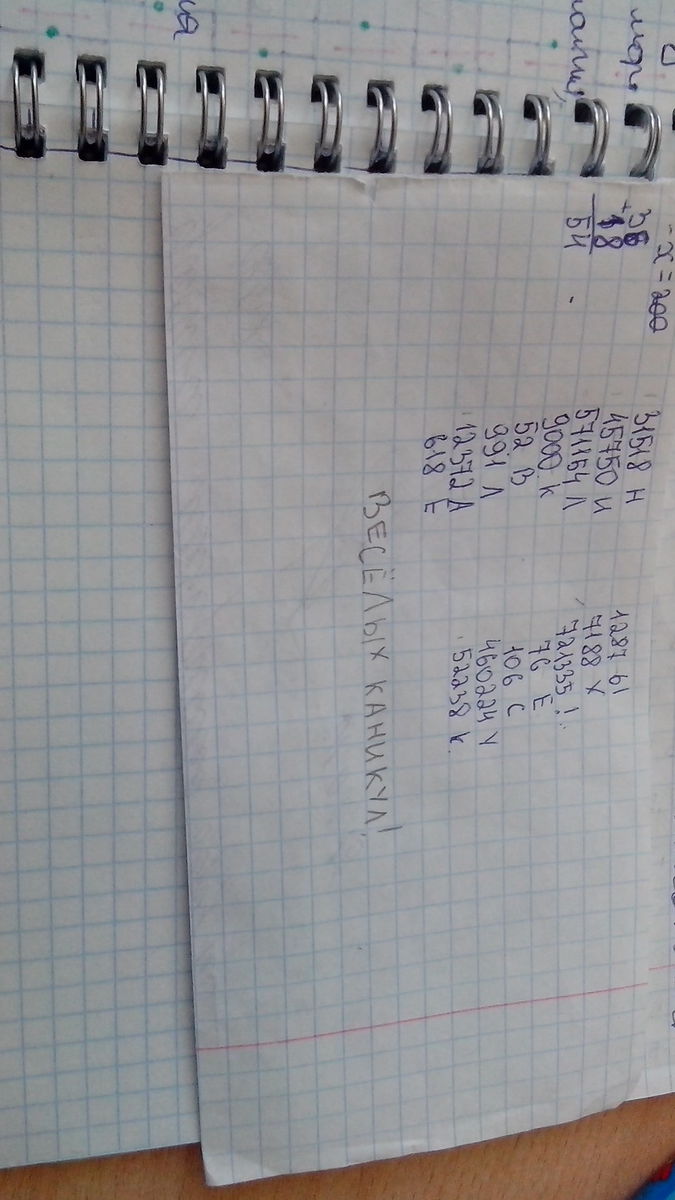 - x = 200
36
+
18
54
31518 Н
45750 И
571164 Л
9000 К
52 В
991 Л
12572 А
618 Е
1287 Ы
7188 Х
721335 !
76 Е
106 С
460224 У
52238 К.
ВЕСЁЛЫХ КАНИКУЛ!